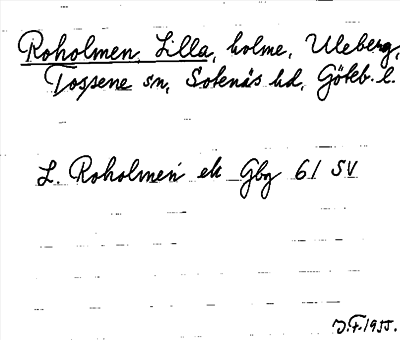 Roholmen, Lilla, holme, Uleberg,
Tossene sn, Sotenäs hd, Göteb. l.
L. Roholmen ek Gbg 61 SV
J.F. 1955.